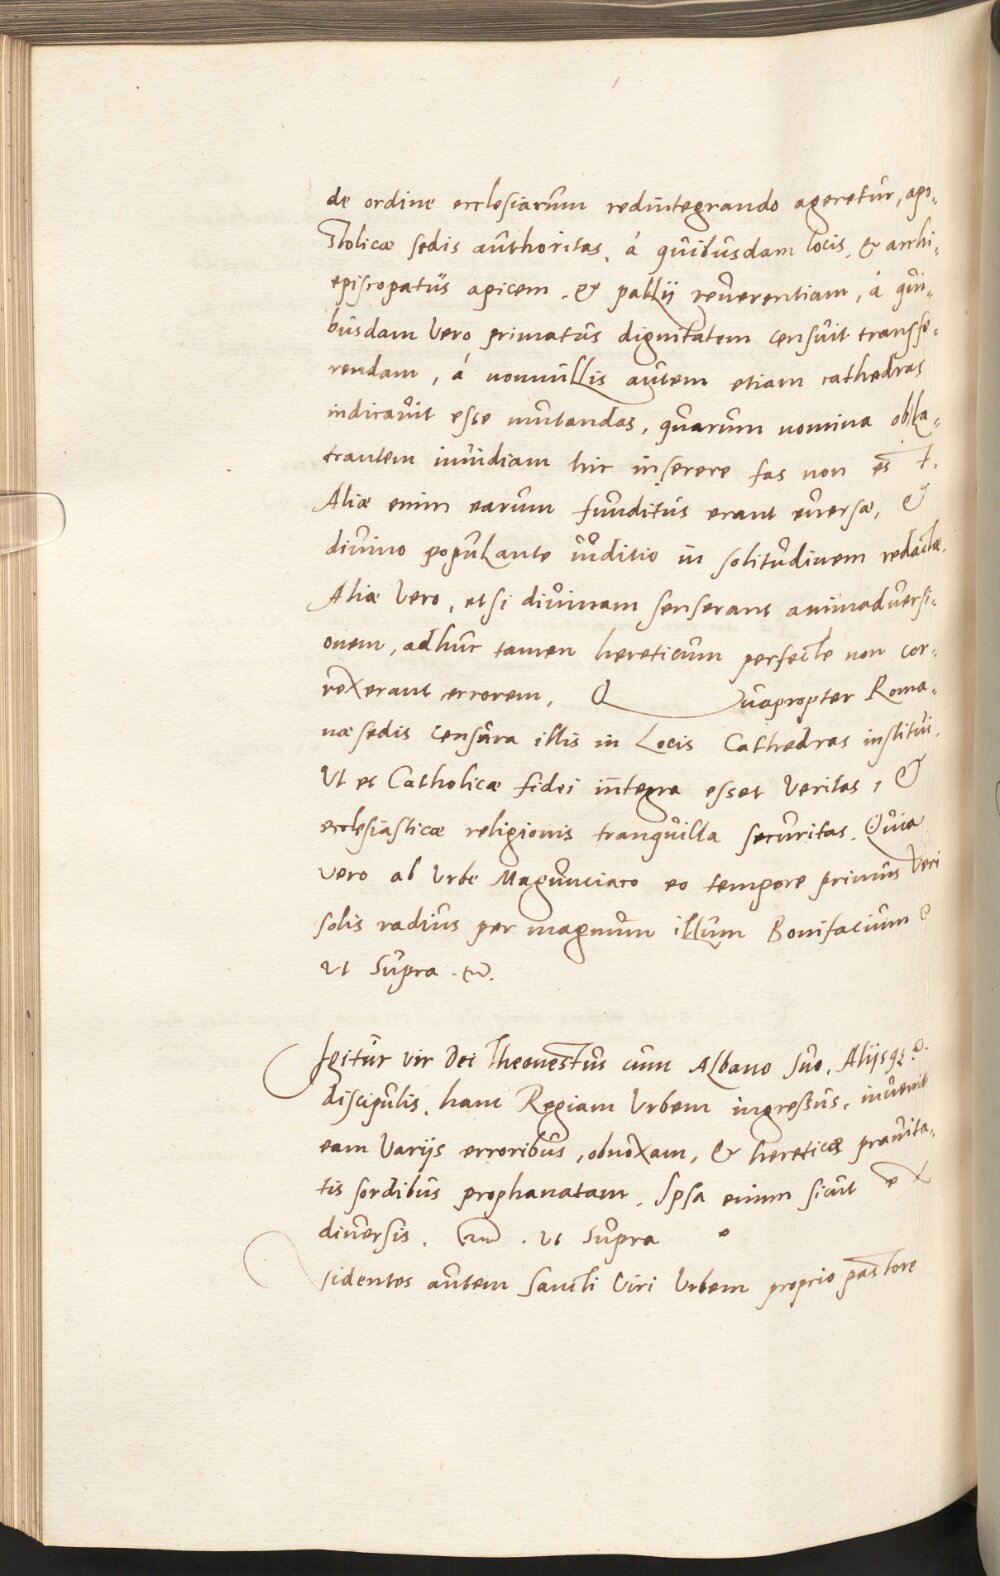 de ordine ecclesiarum redintegrando ageretur, apo-
stolicæ sedis authoritas, á quibusdam locis, & archi-
episcopatus apicem, & pallij reuerentiam, á qui-
busdam Vero primatus dignitatem censuit transfe-
rendam, á nonnullis autem etiam cathedras
indicauit esse mutandas, quarum nomina obla-
trantem inuidiam hic inserere fas non est.
Aliæ enim earum funditus erant euersæ, &
diuino populante iuditio in solitudinem redactæ.
Aliæ Vero, et si diuinam senserant animaduersi-
onem, adhuc tamen hereticum perfecte non cor-
rexerant errorem, Quapropter Roma-
næ sedis censura illis in Locis Cathedras institui,
Ut et Catholicæ fidei integra esset Veritas, &
ecclesiasticæ religionis tranquilla securitas. Quia
vero ab Urbe Magunciaco eo tempore primus Veri
solis radius per magnum illum Bonifacium
ut supra.
Igitur vir Dei Theonestus cum Albano suo, Alijsq3
discipulis, hanc Regiam Urbem ingressus, inuenit
eam Varijs erroribus, obnoxam, & hereticæ prauita-
tis sordibus prophanatam. Ipsa enim sicut ex
diuersis. ut supra
Videntes autem Sancti Viri Urbem proprio pastore